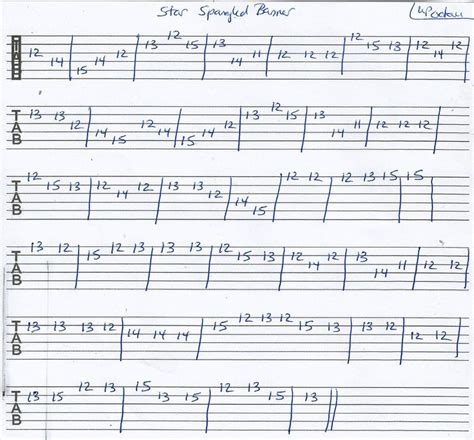 Star Spangled Banner
TAB 12 14 | 15 14 12 | 13 12 15 | 13 14 11 | 12 12 12 | 12 15 13 | 12 14
TAB 13 13 12 | 14 15 12 14 | 15 14 12 | 13 12 15 | 13 14 11 | 12 12 12
TAB 12 15 13 | 12 14 12 | 13 13 12 | 14 15 12 12 | 12 13 15 | 15
TAB 13 12 | 15 12 13 | 13 13 12 | 15 12 13 | 12 14 13 | 14 11 | 12 12
TAB 13 13 13 12 | 14 14 14 | 15 12 13 12 15 | 13 12 | 13 13 12 | 12 12
TAB 13 15 12 13 | 15 13 15 | 12 12 13 | 15 13